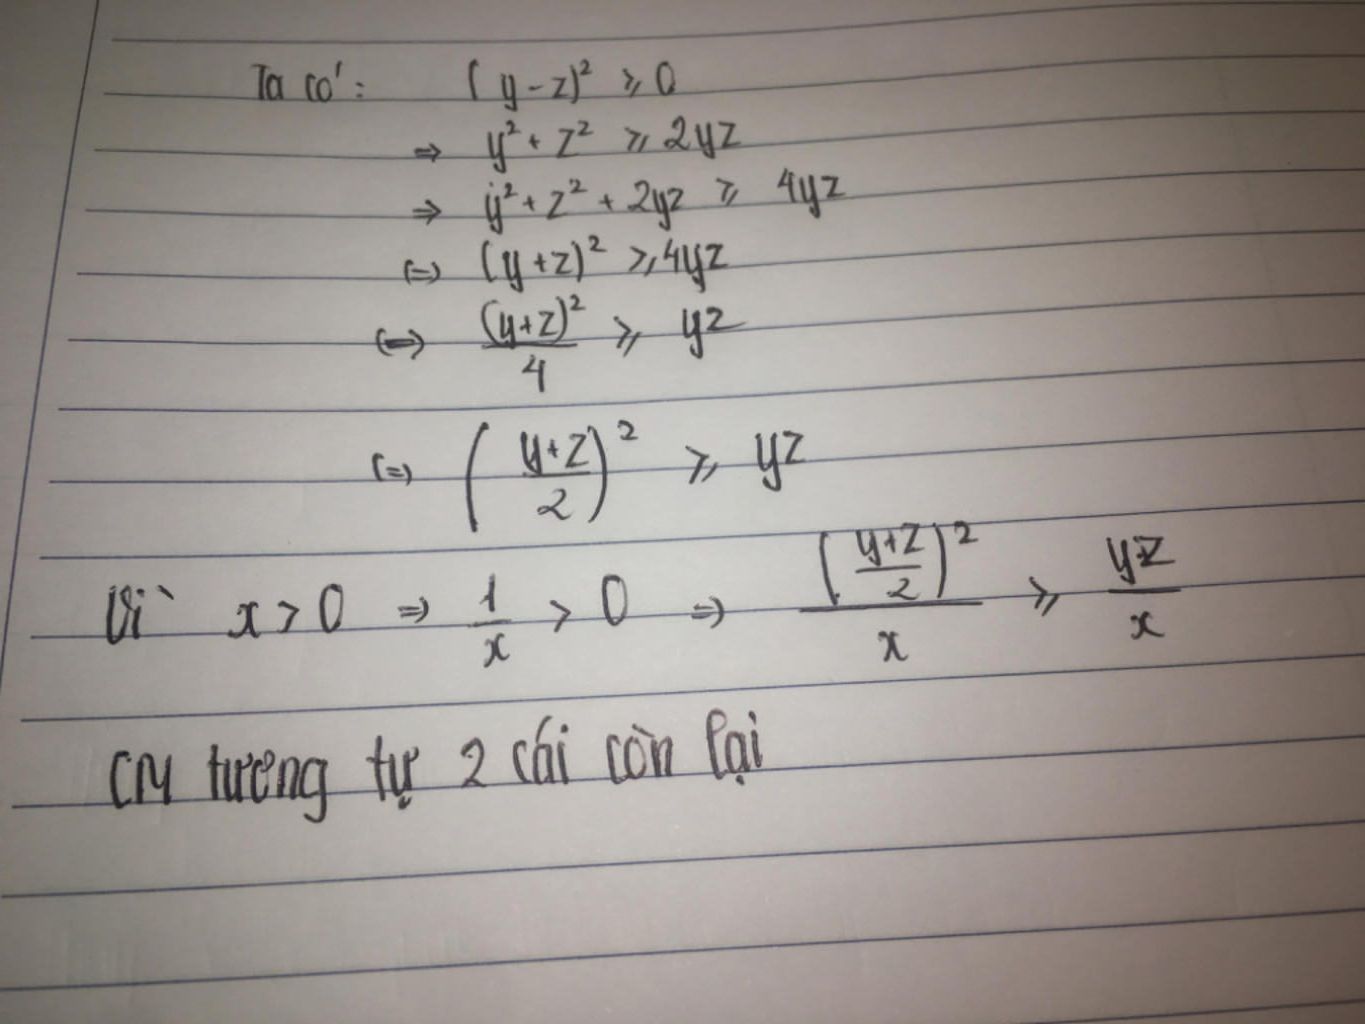 Ta có: (y-z)² ≥ 0
⇒ y² + z² ≥ 2yz
⇒ y² + z² + 2yz ≥ 4yz
(=) (y+z)² ≥ 4yz
(=) (y+z)²/4 ≥ yz
(=) ((y+z)/2)² ≥ yz
Vì x > 0 ⇒ 1/x > 0 ⇒ ((y+z)/2)²/x ≥ yz/x
CM tương tự 2 cái còn lại